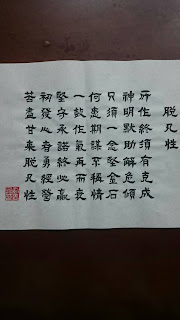 脫凡性
所作終須有克成
神明默助解危傾
只須一念堅金石
何患期謀不稱情
一鼓作氣再而衰
堅守承諾終必贏
初發心者勇經營
苦盡甘來脫凡性